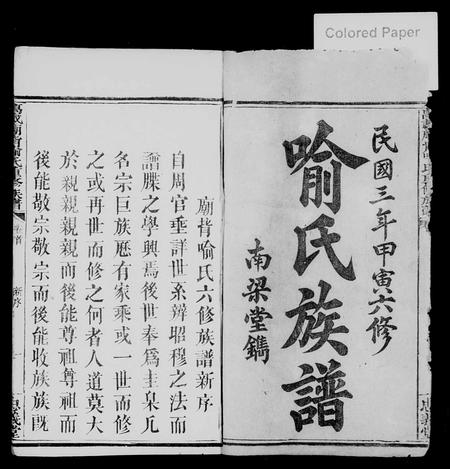 Colored Paper
民國三年甲寅六修
喻氏族譜
南梁堂鐫
廟背喻氏六修族譜新序
自周官垂詳世系辨昭穆之法而
譜牒之學興焉後世奉爲圭臬凡
名宗巨族歷有家乘或一世而修
之或再世而修之何者人道莫大
於親親親親而後能尊祖尊祖而
後能敬宗敬宗而後能收族族既
卷首
新序